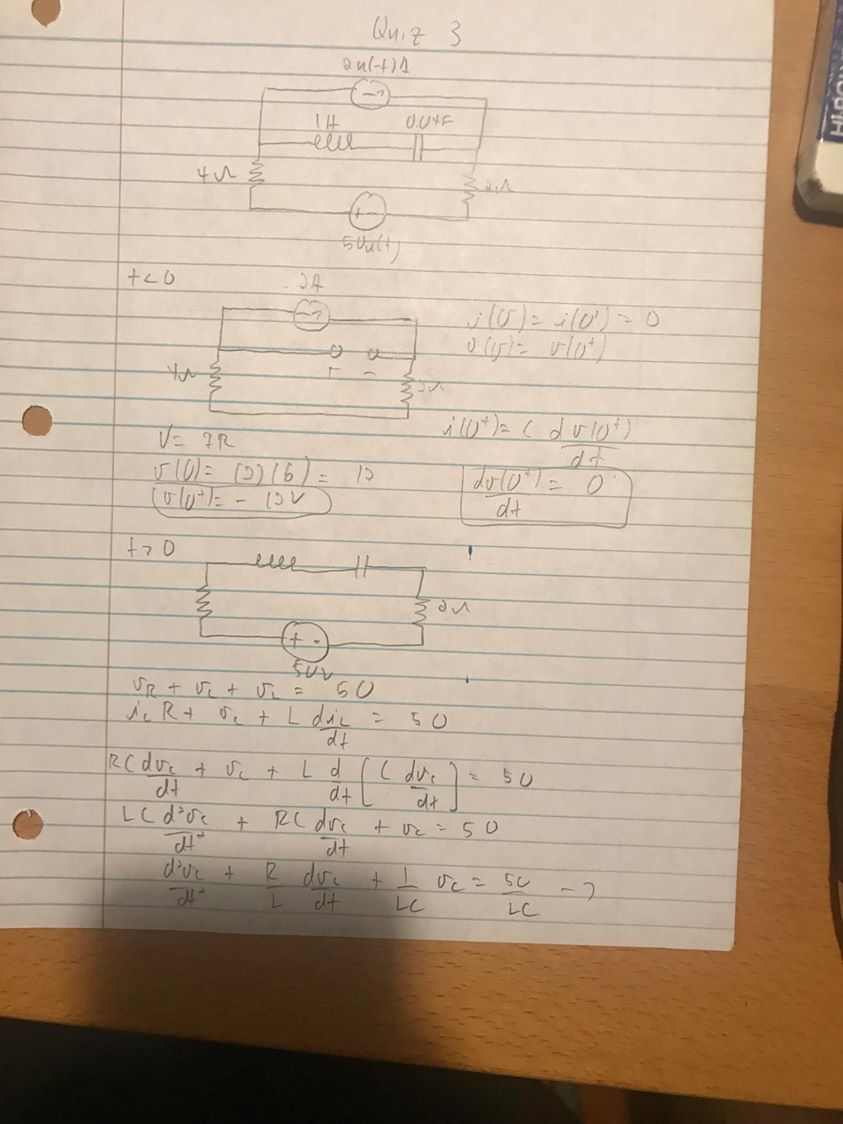 Quiz 3
2u(-t)A
1H 0.04F
4Ω 2Ω
50u(t)
+ -
t<0 2A
i(0) = i(0⁺) = 0
v(0) = v(0⁺)
4Ω 2Ω
+ -
V = IR
v(0) = (2)(6) = 12
v(0⁺) = - 12V
i(0⁺) = C dv(0⁺)/dt
dv(0⁺)/dt = 0
t>0
2Ω
+ -
50V
v_R + v_C + v_L = 50
i_C R + v_C + L di_C/dt = 50
RC dv_C/dt + v_C + L d/dt [C dv_C/dt] = 50
LC d²v_C/dt² + RC dv_C/dt + v_C = 50
d²v_C/dt² + R/L dv_C/dt + 1/LC v_C = 50/LC →